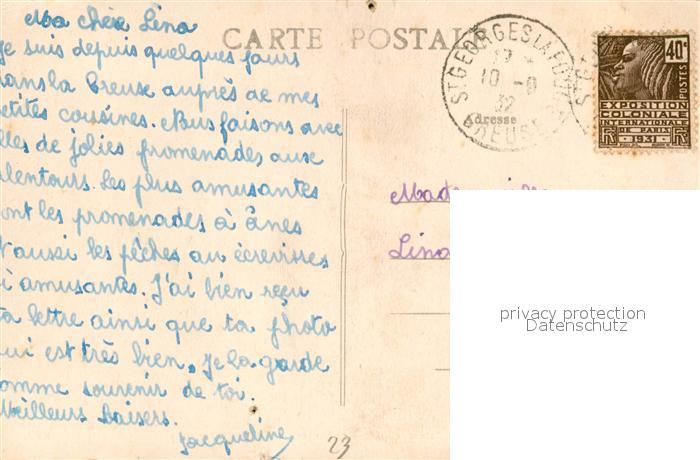 Ma chère Lina
Je suis depuis quelques jours
dans la Creuse auprès de mes
petites cousines. Nous faisons avec
elles de jolies promenades aux
alentours. Les plus amusantes
sont les promenades à ânes
et aussi les pêches au écrevisses
si amusantes. J'ai bien reçu
ta lettre ainsi que ta photo
qui est très bien. Je la garde
comme souvenir de toi.
Meilleurs baisers.
Jacqueline
23
CARTE POSTALE
ST GEORGES LA
10 - 8
32
CREUSE
Adresse
40c
POSTES
EXPOSITION
COLONIALE
INTERNATIONALE
DE PARIS
1931
Lina
privacy protection
Datenschutz